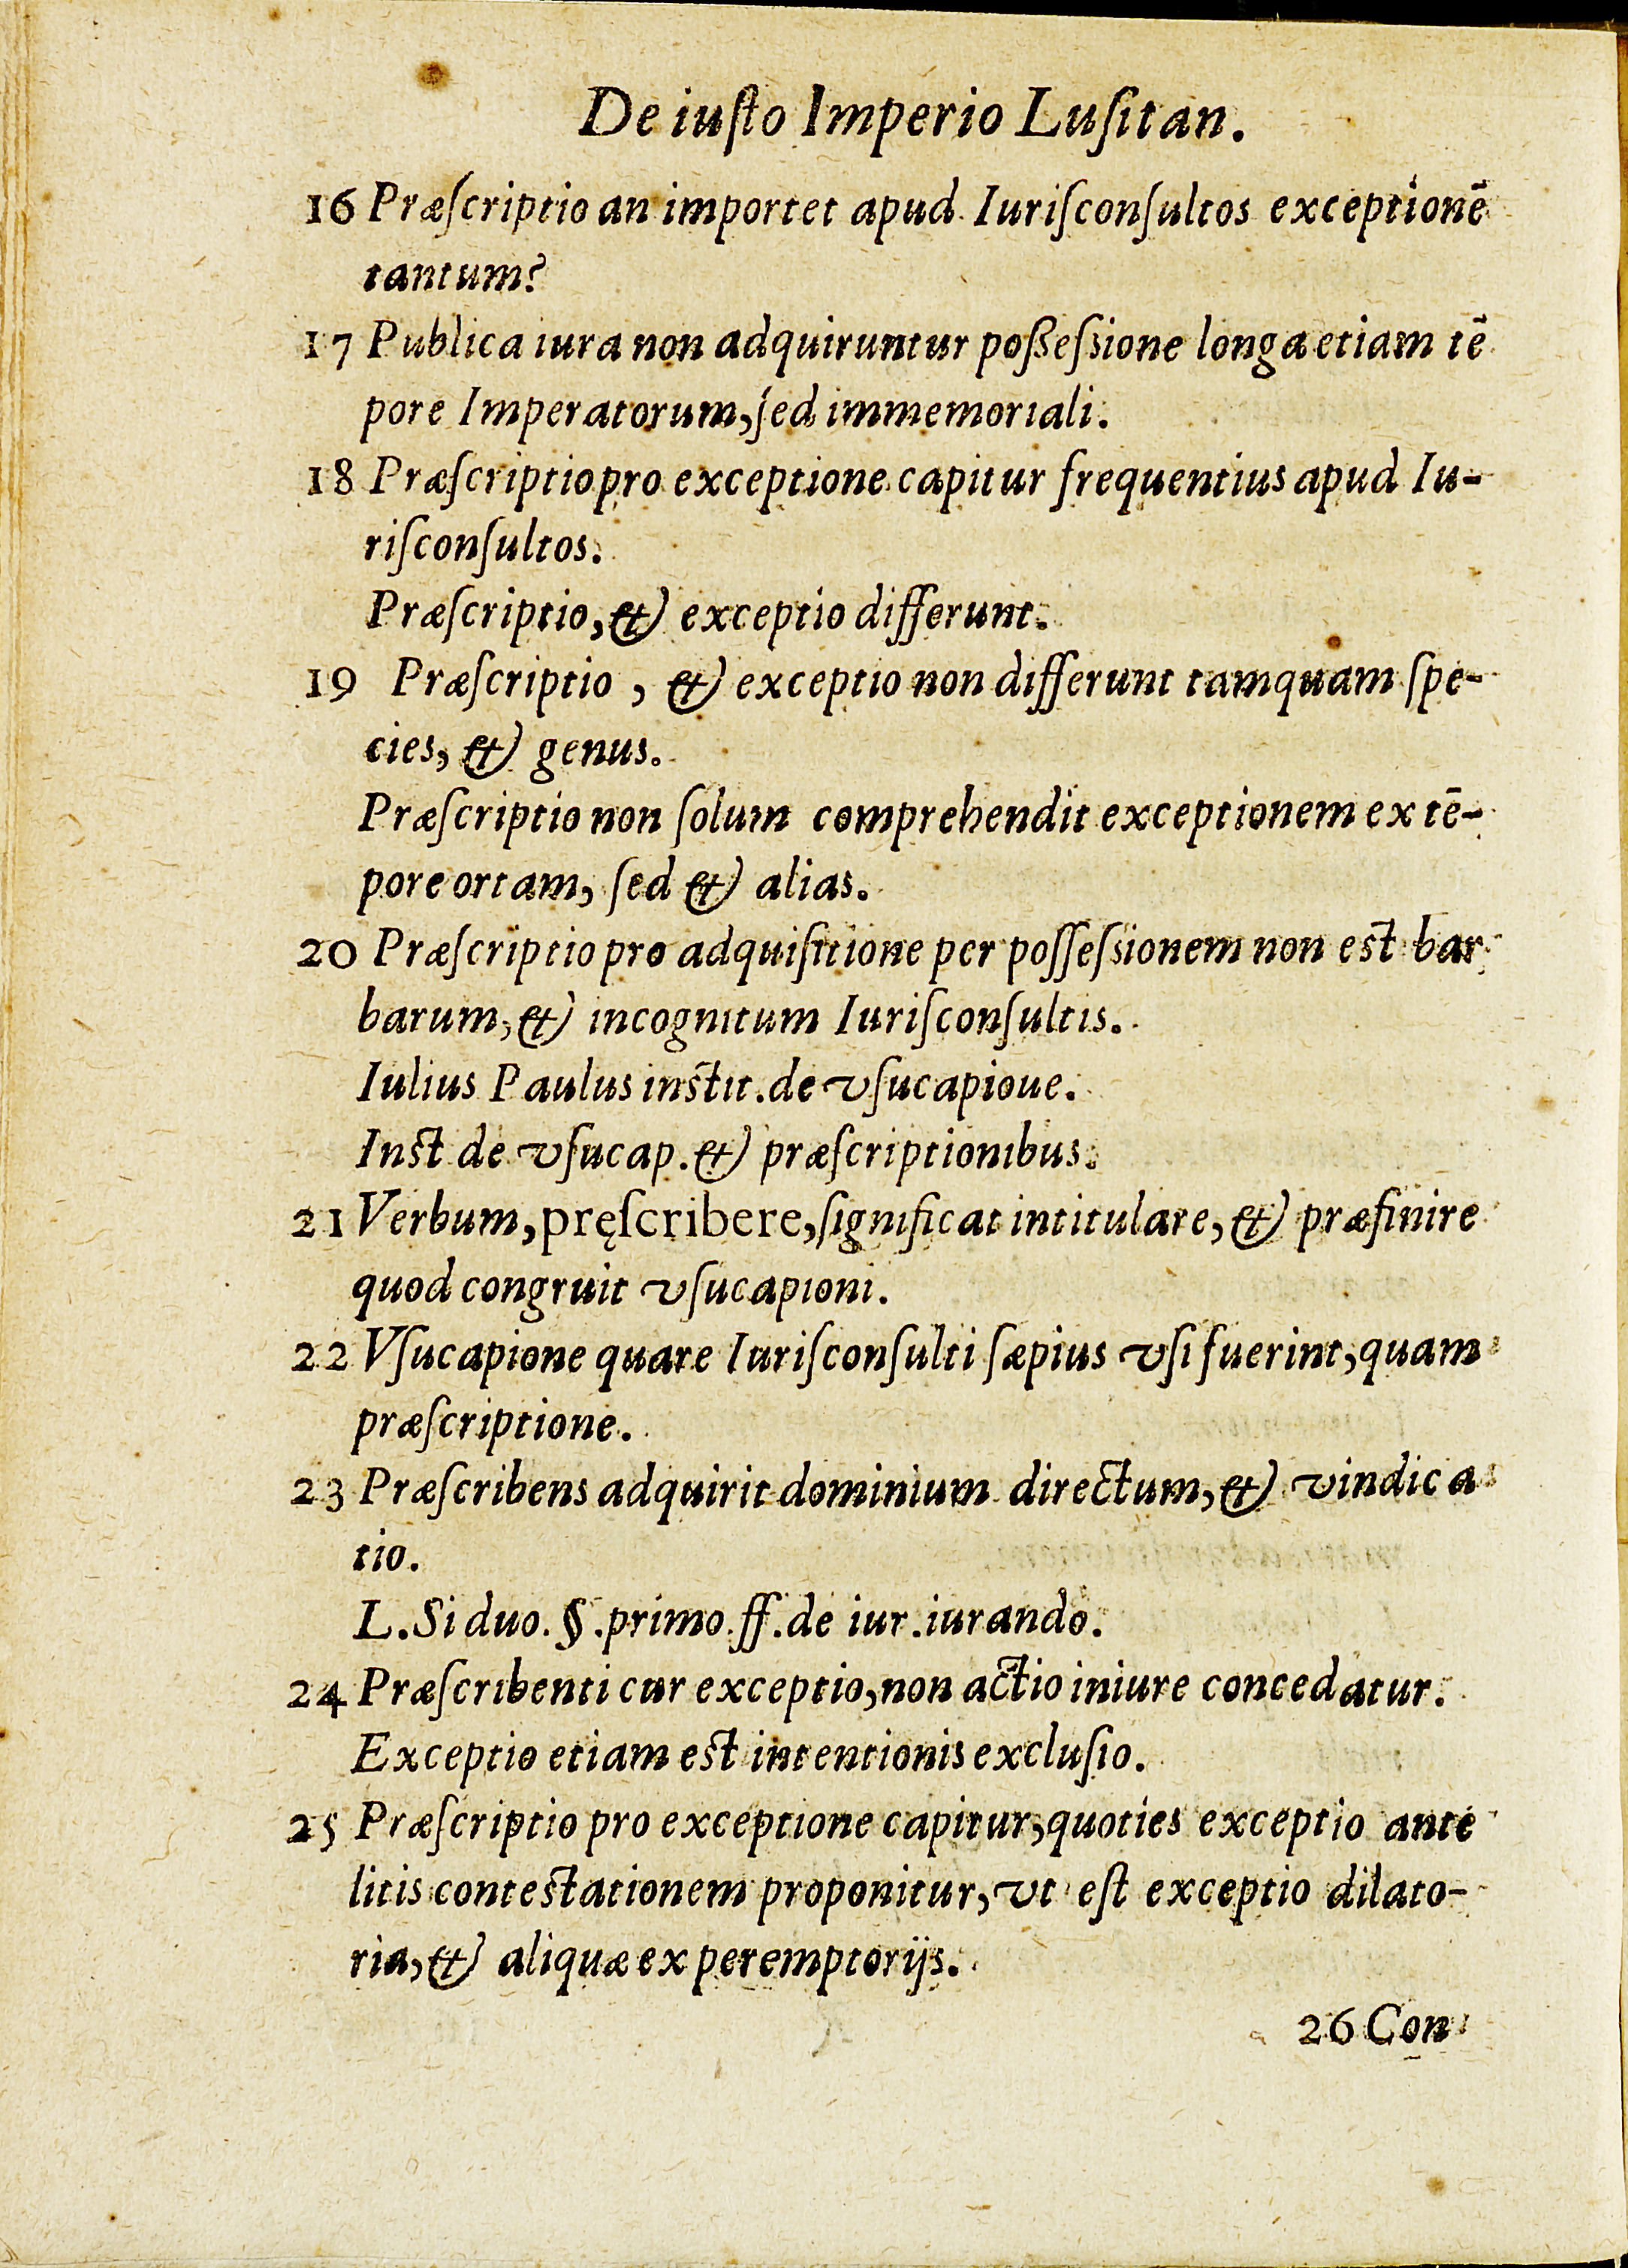 De iuſto Imperio Luſitan.
16 Præſcriptio an importet apud Iuriſconſultos exceptionē
tantum?
17 Publica iura non adquiruntur poßeſsione longa etiam tē
pore Imperatorum, ſed immemoriali.
18 Præſcriptio pro exceptione capitur frequentius apud Iu-
riſconſultos.
Præſcriptio, & exceptio differunt.
19 Præſcriptio, & exceptio non differunt tamquam ſpe-
cies, & genus.
Præſcriptio non ſolum comprehendit exceptionem ex tē-
pore ortam, ſed & alias.
20 Præſcriptio pro adquiſitione per poſſeſsionem non est bar
barum, & incognitum Iuriſconſultis.
Iulius Paulus instit. de vſucapioue.
Inst de vſucap. & præſcriptionibus.
21 Verbum, pręſcribere, ſignificat intitulare, & præfinire
quod congruit vſucapioni.
22 Vſucapione quare Iuriſconſulti ſæpius vſi fuerint, quam
præſcriptione.
23 Præſcribens adquirit dominium directum, & vindica
tio.
L. Si duo. §. primo. ff. de iur. iurando.
24 Præſcribenti cur exceptio, non actio iniure concedatur.
Exceptio etiam est intentionis excluſio.
25 Præſcriptio pro exceptione capitur, quoties exceptio ante
litis contestationem proponitur, vt eſt exceptio dilato-
ria, & aliquæ ex peremptorijs.
26 Con